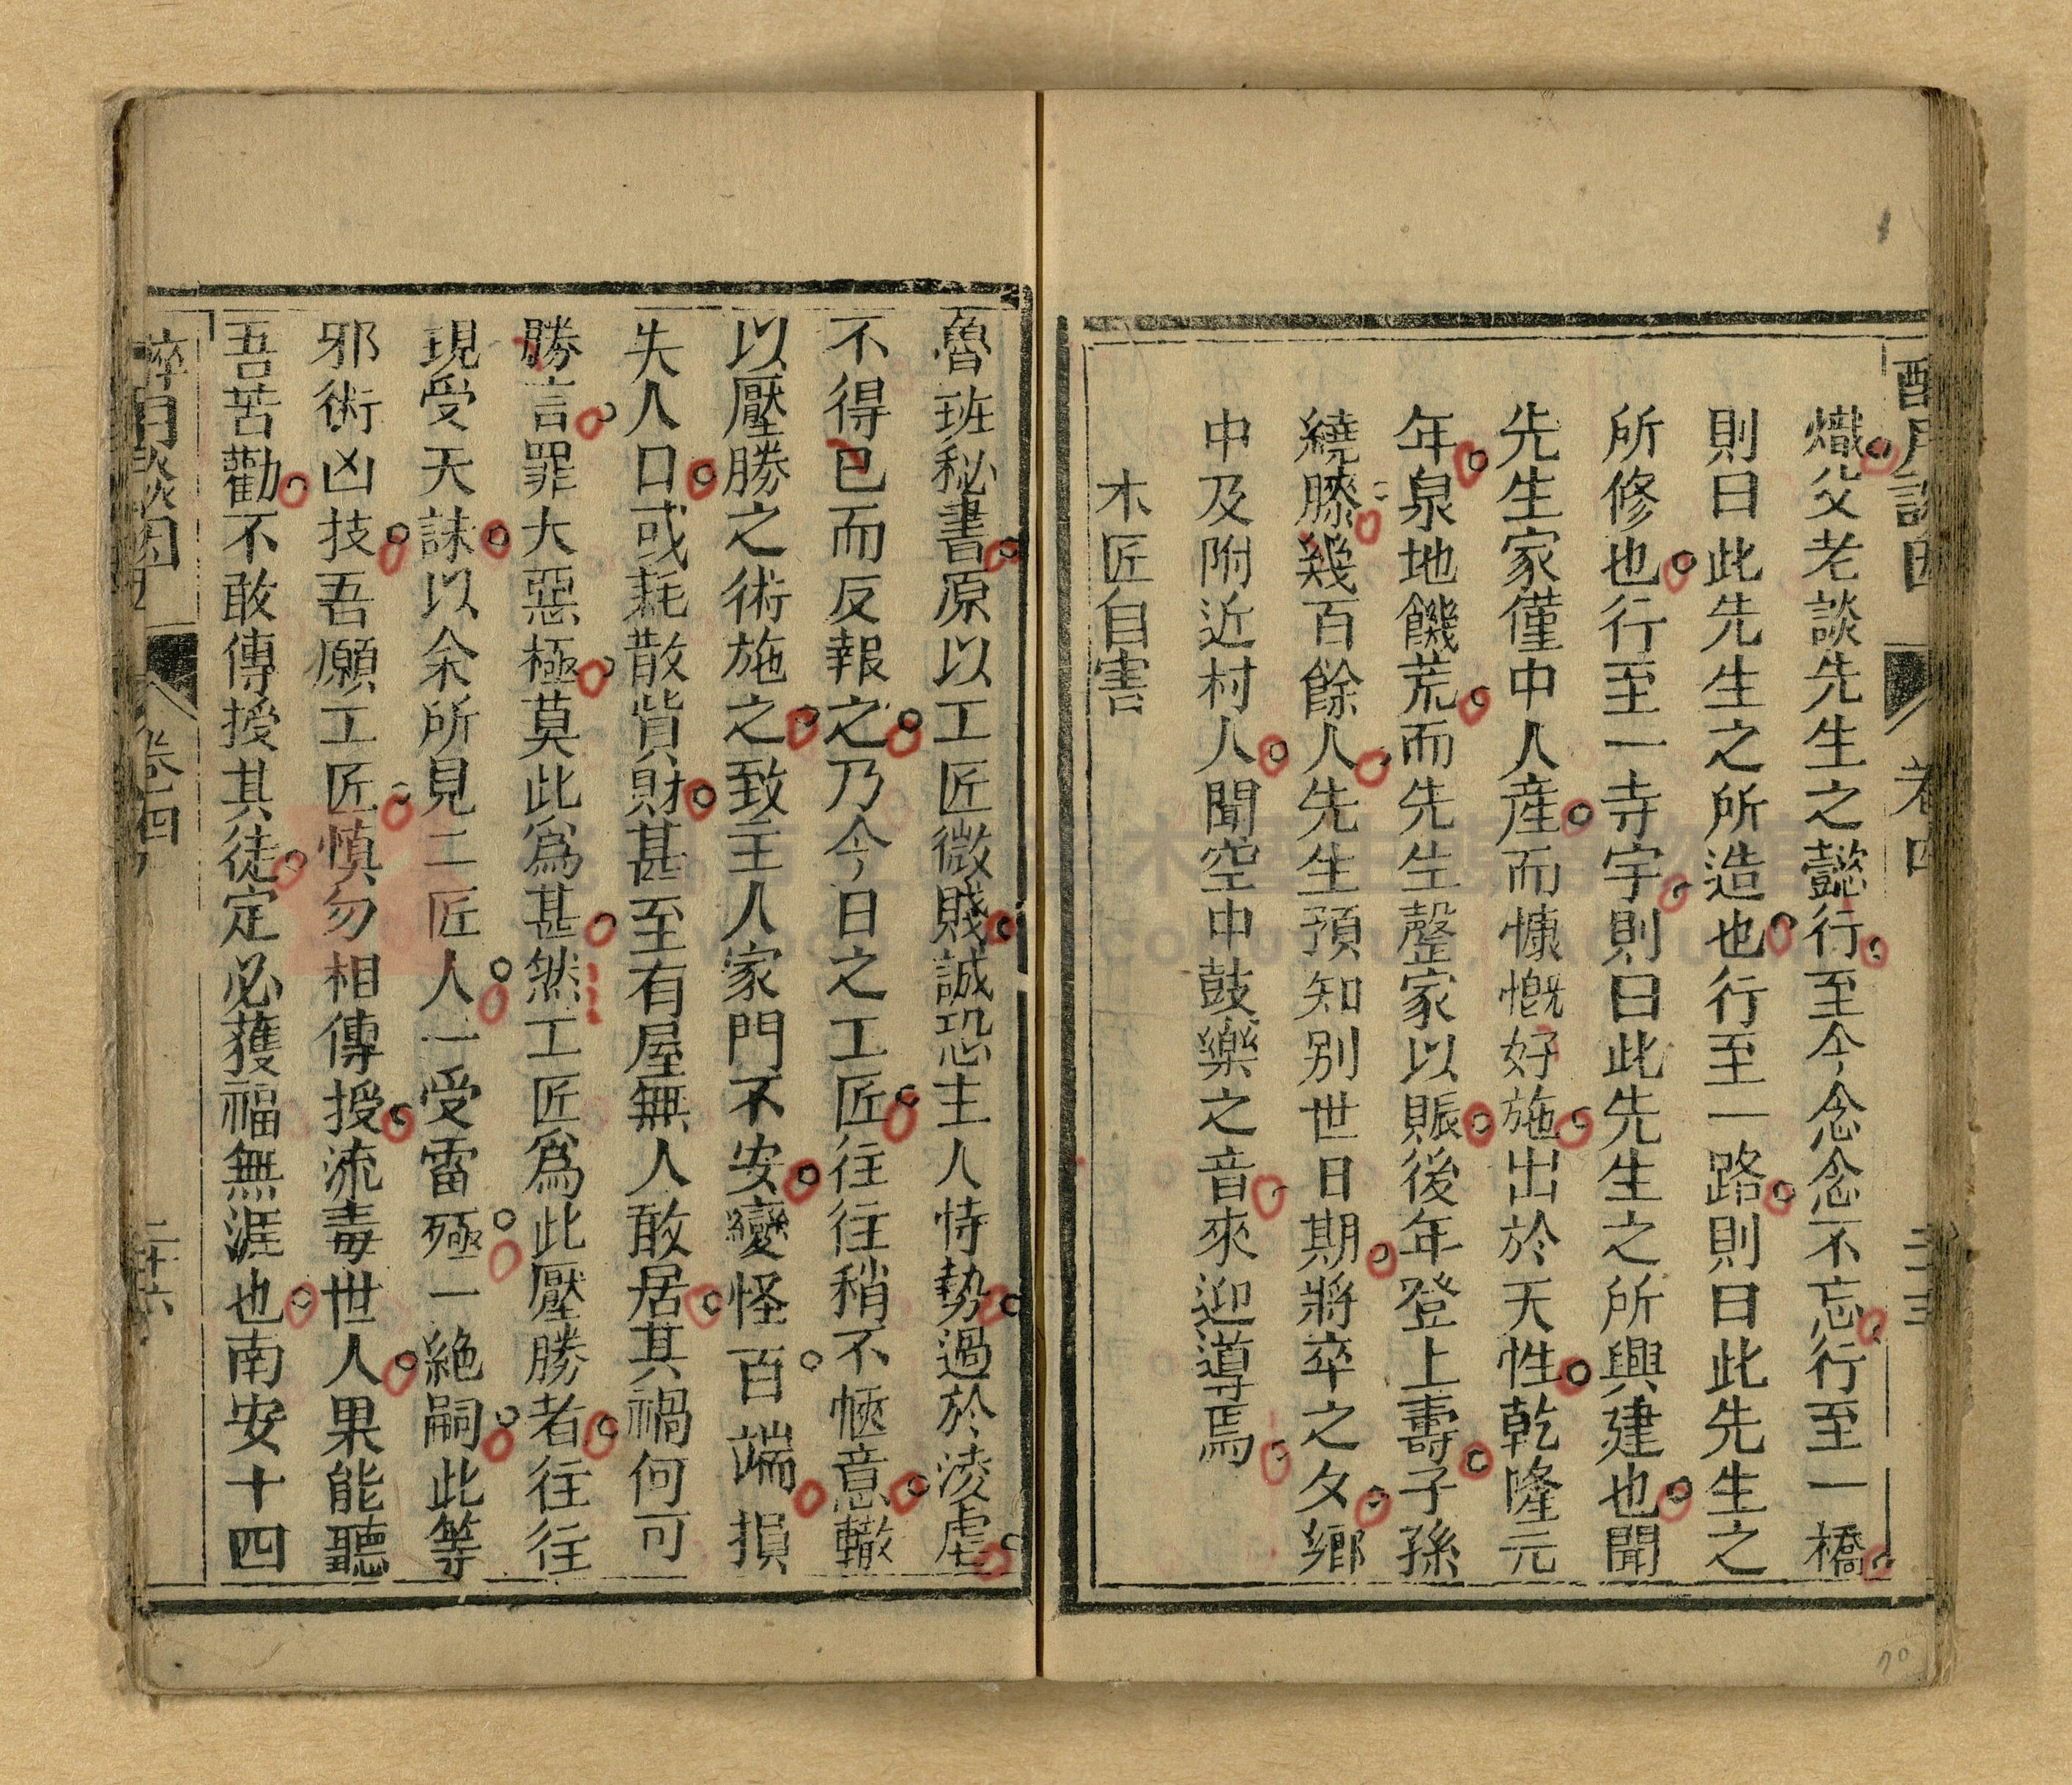 醉月談因
卷四
熾父老談先生之懿行至今念念不忘行至一橋
則曰此先生之所造也行至一路則曰此先生之
所修也行至一寺宇則曰此先生之所興建也聞
先生家僅中人産而慷慨好施出於天性乾隆元
年泉地饑荒而先生罄家以賑後年登上壽子孫
繞膝幾百餘人先生預知別世日期將卒之夕鄉
中及附近村人聞空中鼓樂之音來迎導焉
木匠自害
魯班秘書原以工匠微賤誠恐主人恃勢過於淩虐
不得已而反報之乃今日之工匠往往稍不愜意輙
以壓勝之術施之致主人家門不安變怪百端損
失人口或耗散貲財甚至有屋無人敢居其禍何可
勝言罪大惡極莫此爲甚然工匠爲此壓勝者往往
現受天誅以余所見二匠人一受雷殛一絶嗣此等
邪術凶技吾願工匠慎勿相傳授流毒世人果能聽
吾苦勸不敢傳授其徒定必獲福無涯也南安十四
醉月談因
卷四
二十六